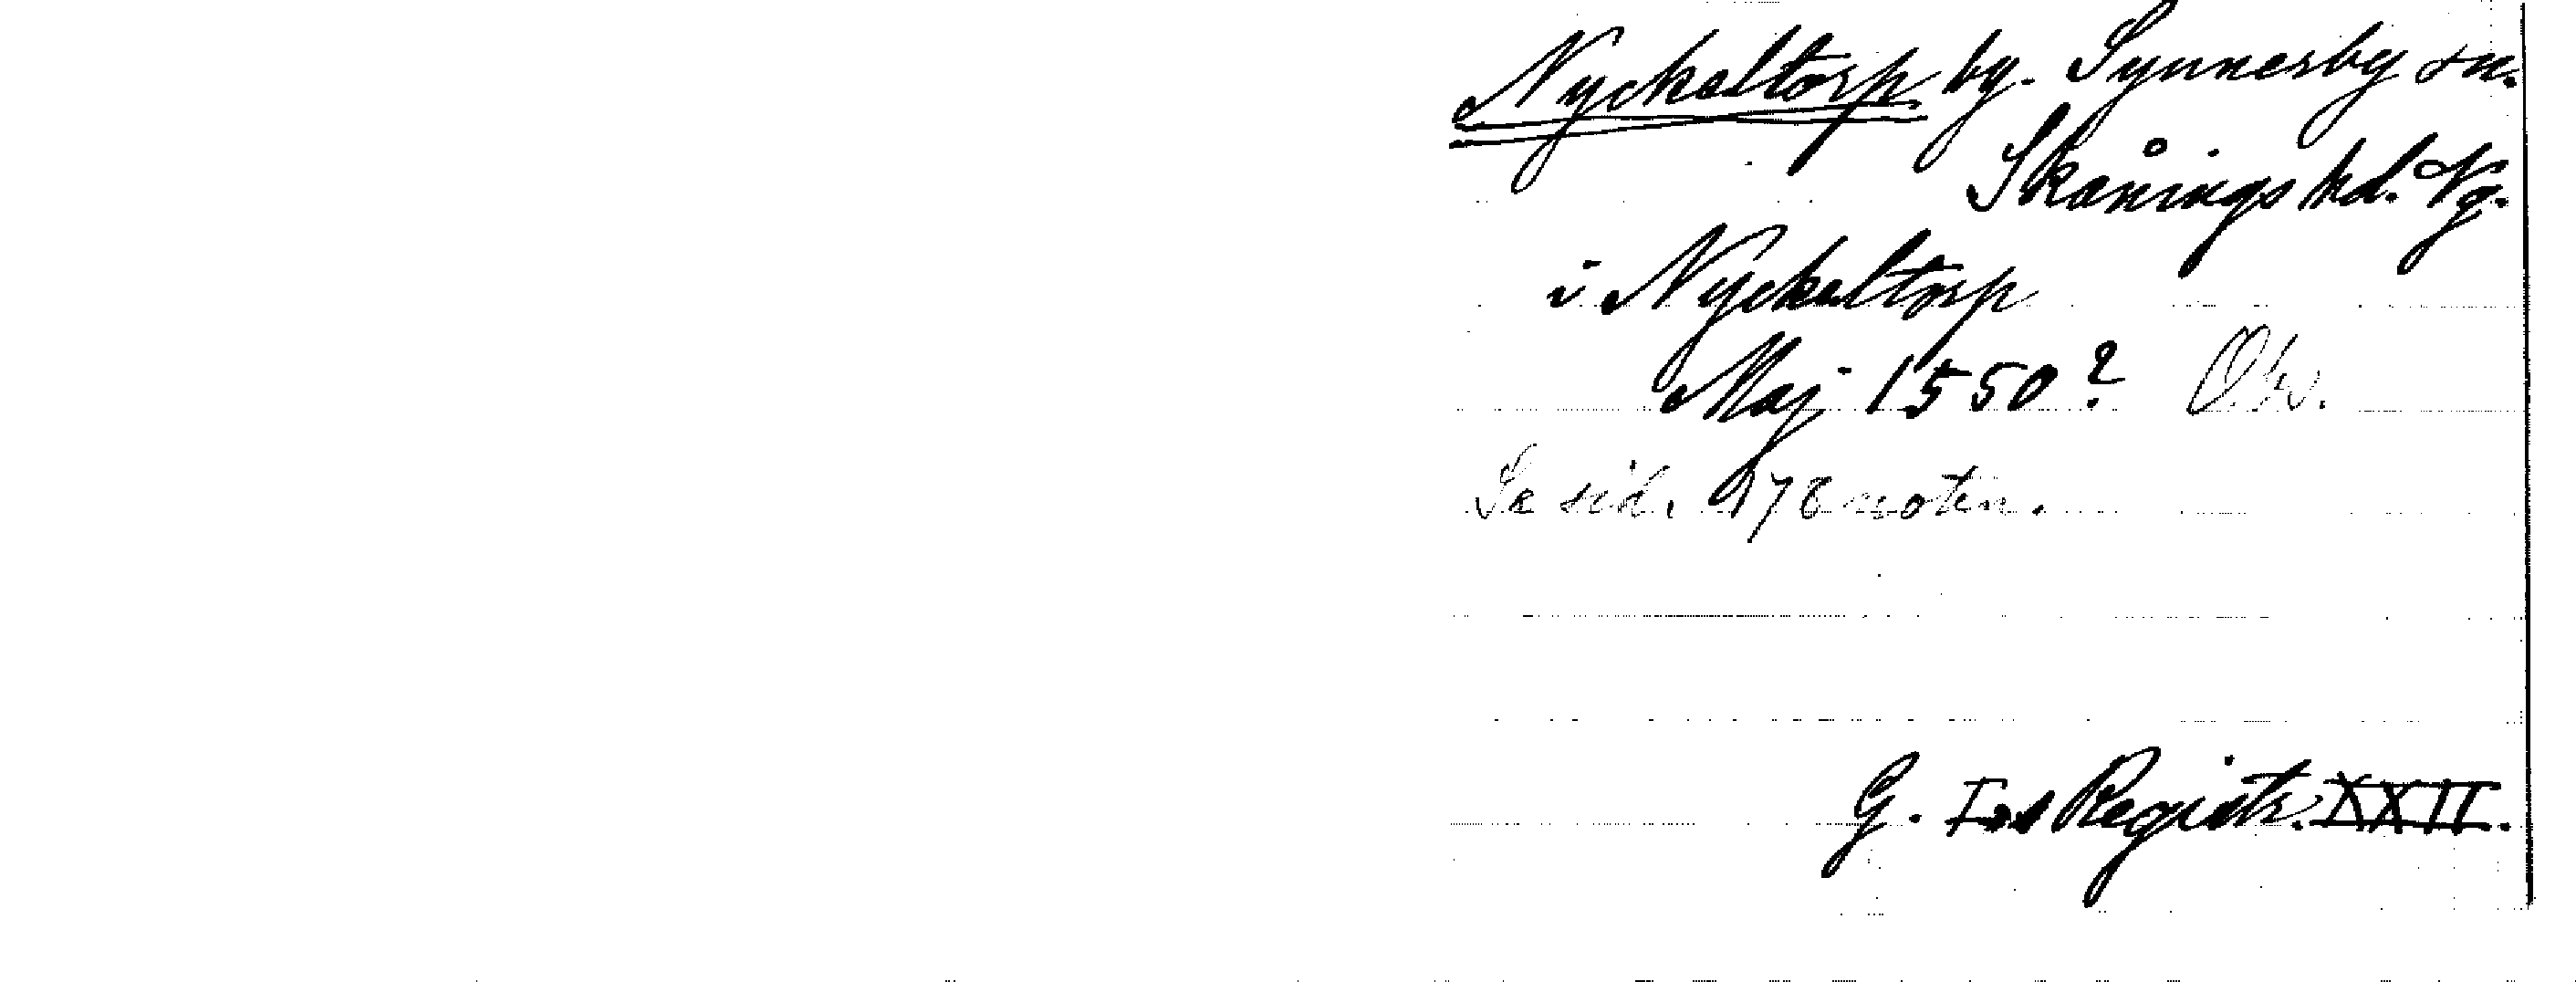 Nyckeltorp by. Synnerby sn.
Skånings hd. Vg.
i Nyckeltorp
Maj 1550?
Se sid. 178 noten.
G. I:s Registr. XXII.